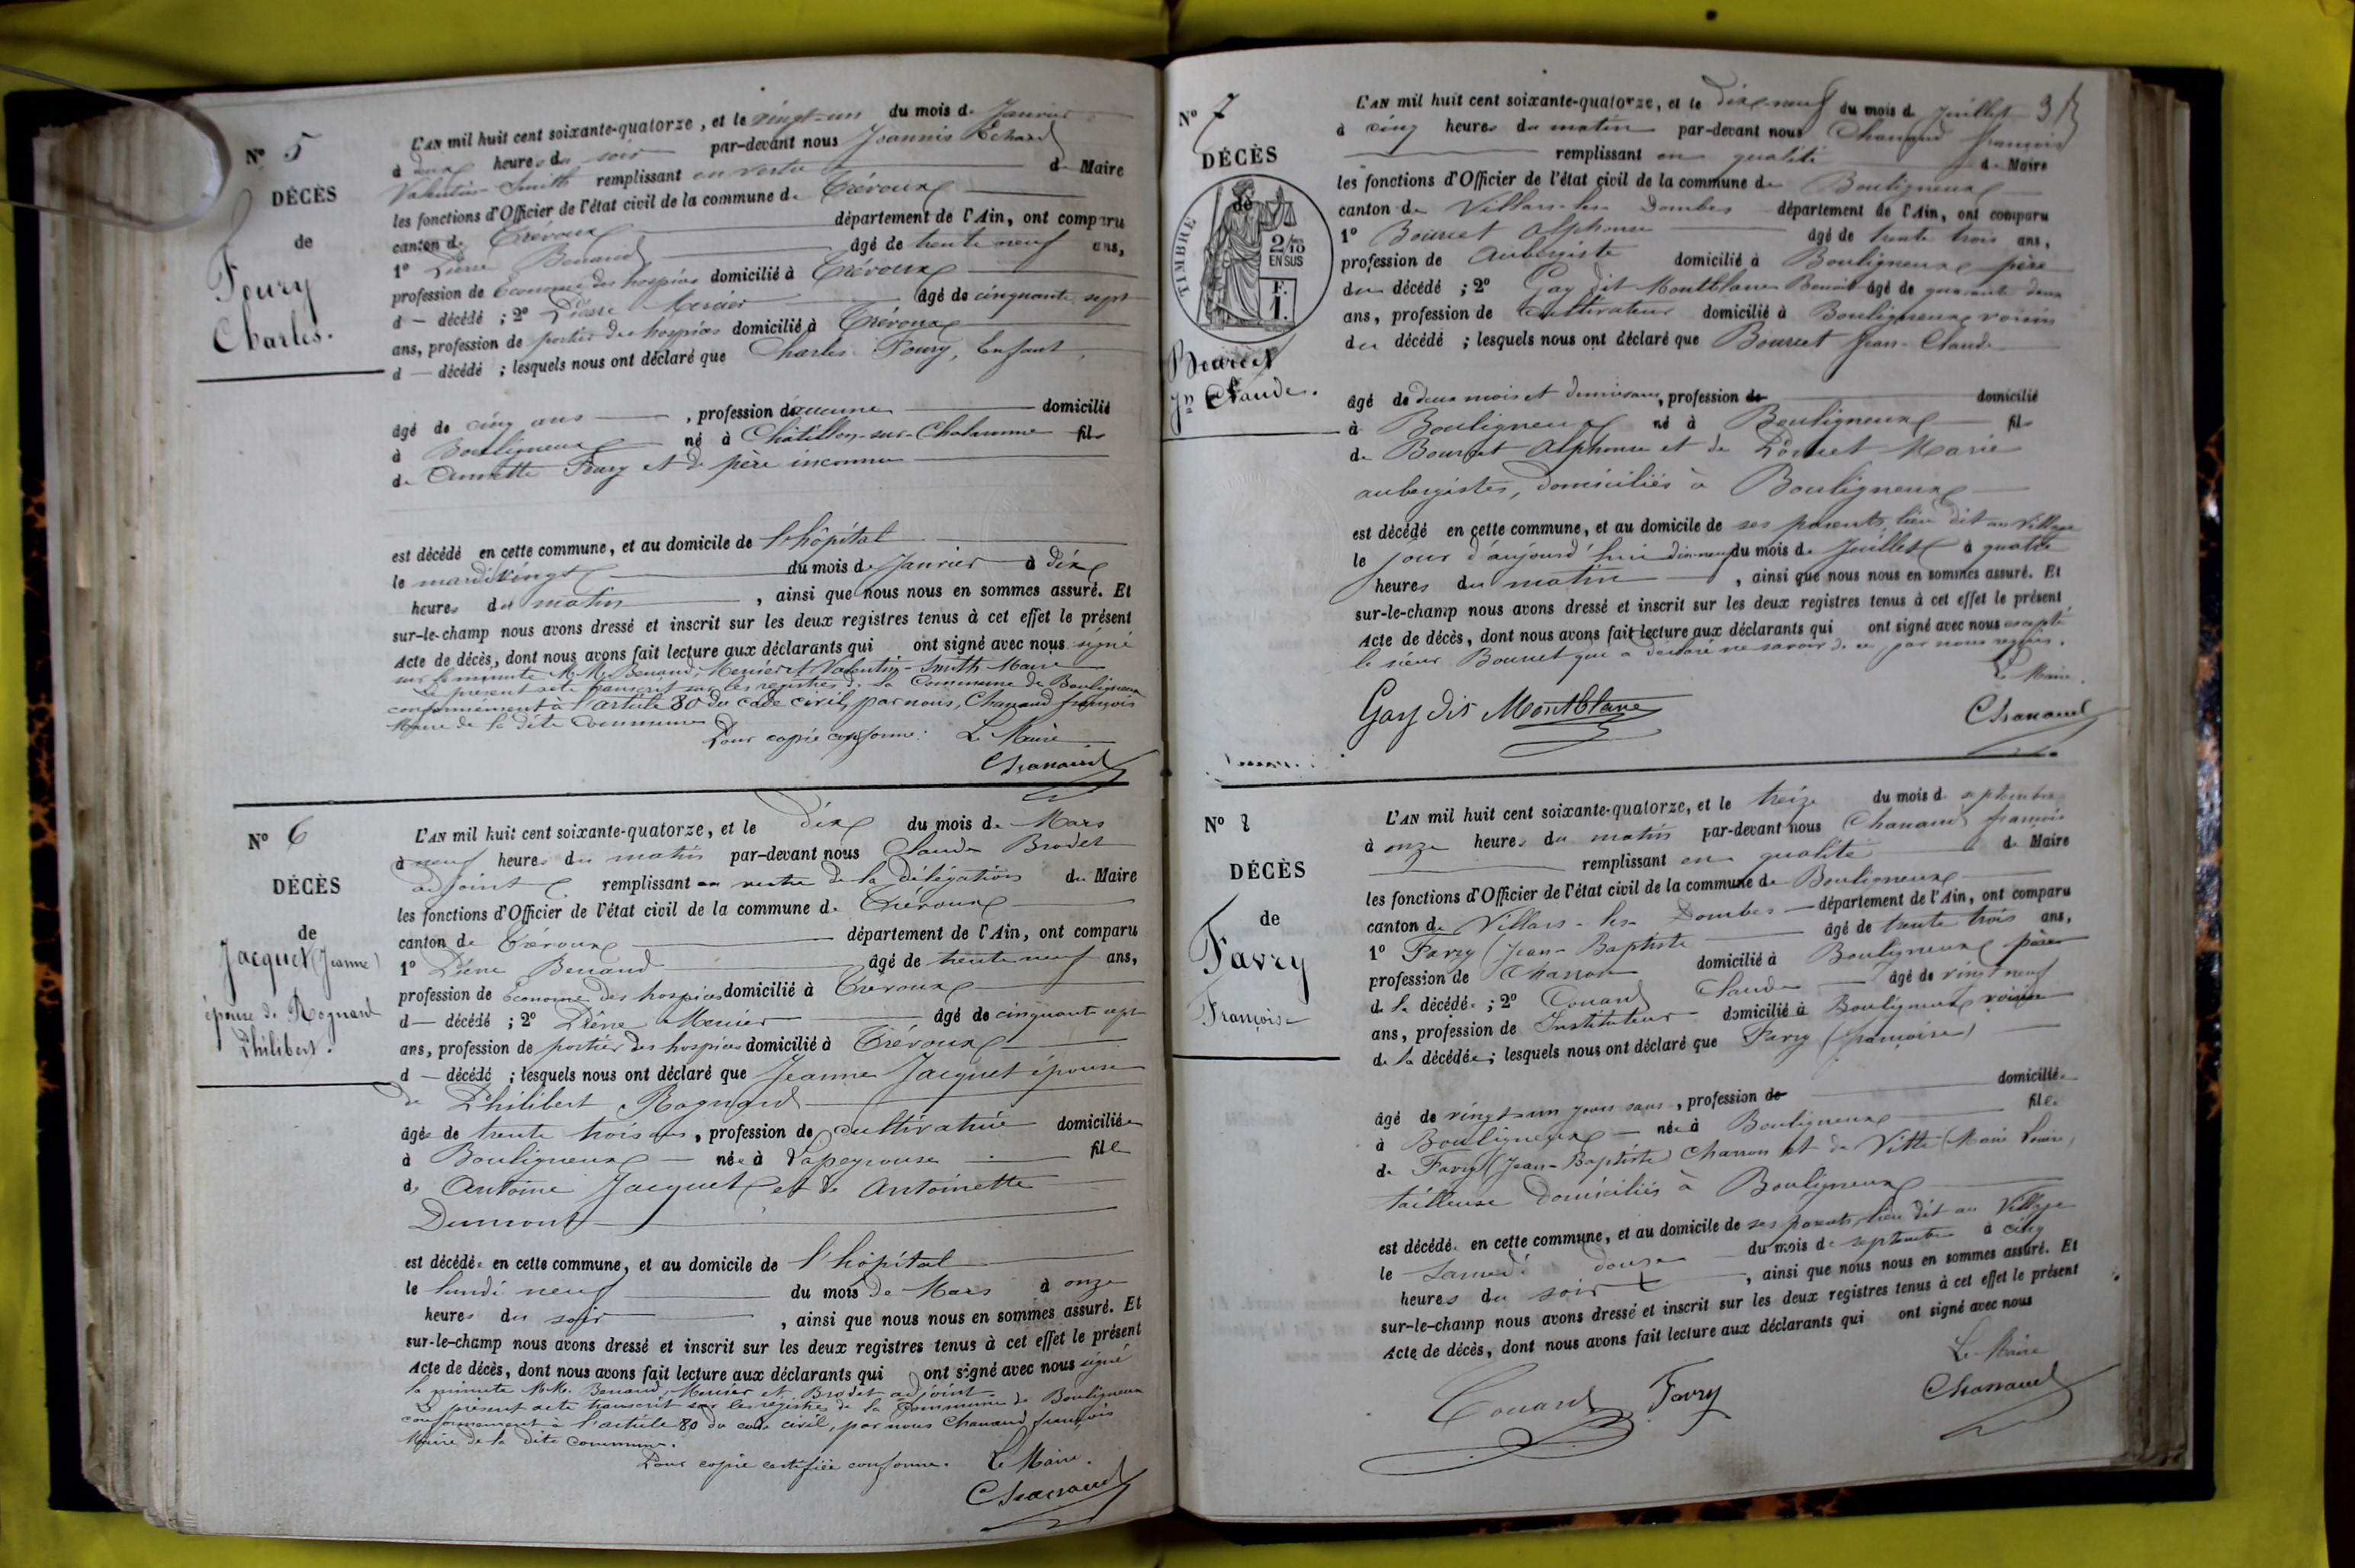 N° 5
DÉCÈS
de
Foury
Charles.
L'AN mil huit cent soixante-quatorze, et le vingt-un du mois de Janvier
à deux heures du soir par-devant nous Joannis Echard
Valentin-Smith remplissant en vertu de Maire
les fonctions d'Officier de l'état civil de la commune de Trévoux
canton de Trévoux département de l'Ain, ont comparu
1° Pierre Benaud âgé de trente neuf ans,
profession de Econome des hospices domicilié à Trévoux
d décédé ; 2° Pierre Mercier âgé de cinquante sept
ans, profession de portier des hospices domicilié à Trévoux
d décédé ; lesquels nous ont déclaré que Charles Foury, Enfant,
âgé de cinq ans, profession d aucune domicilié
à Bouligneux né à Châtillon-sur-Chalaronne fils
de Annette Foury et de père inconnu
est décédé en cette commune, et au domicile de l'hôpital
le mardi vingt du mois de Janvier à dix
heures du matin, ainsi que nous nous en sommes assuré. Et
sur-le-champ nous avons dressé et inscrit sur les deux registres tenus à cet effet le présent
Acte de décès, dont nous avons fait lecture aux déclarants qui ont signé avec nous signé
sur la minute M.M. Benaud, Mercier et Valentin-Smith Maire
Le présent acte transcrit sur les registres de la Commune de Bouligneux
conformément à l'article 80 du code civil, par nous, Chanaud françois
Maire de la dite commune
Pour copie conforme: Le Maire
Chanaud
N° 6
DÉCÈS
de
Jacquet (Jeanne)
épouse de Rognard
Philibert.
L'AN mil huit cent soixante-quatorze, et le dix du mois de Mars
à neuf heures du matin par-devant nous Claude Brodet
adjoint remplissant en vertu de la délégation du Maire
les fonctions d'Officier de l'état civil de la commune de Trévoux
canton de Trévoux département de l'Ain, ont comparu
1° Pierre Benaud âgé de trente neuf ans,
profession de Econome des hospices domicilié à Trévoux
d décédé ; 2° Pierre Mercier âgé de cinquante sept
ans, profession de portier des hospices domicilié à Trévoux
d décédé ; lesquels nous ont déclaré que Jeanne Jacquet épouse
de Philibert Rognard
âgée de trente trois ans, profession de cultivatrice domiciliée
à Bouligneux née à Lapeyrouse fille
de Antoine Jacquet et de Antoinette
Dumont
est décédée en cette commune, et au domicile de l'hôpital
le lundi neuf du mois de Mars à onze
heures du soir, ainsi que nous nous en sommes assuré. Et
sur-le-champ nous avons dressé et inscrit sur les deux registres tenus à cet effet le présent
Acte de décès, dont nous avons fait lecture aux déclarants qui ont signé avec nous signé
la minute M.M. Benaud, Mercier et Brodet adjoint.
Le présent acte transcrit sur les registres de la Commune de Bouligneux
conformément à l'article 80 du code civil, par nous Chanaud françois
Maire de la dite commune.
Pour copie certifiée conforme. Le Maire.
Chanaud
N° 7
DÉCÈS
de
TIMBRE
2/10 EN SUS
F. 1.
Bourcet
Jn Claude.
L'AN mil huit cent soixante-quatorze, et le dix-neuf du mois d Juillet
à cinq heures du matin par-devant nous Chanaud françois
remplissant en qualité de Maire
les fonctions d'Officier de l'état civil de la commune de Bouligneux
canton de Villars-les-Dombes département de l'Ain, ont comparu
1° Bourcet Alphonse âgé de trente trois ans,
profession de Aubergiste domicilié à Bouligneux père
du décédé ; 2° Gay dit Montblanc Benoit âgé de quarante deux
ans, profession de Cultivateur domicilié à Bouligneux voisin
du décédé ; lesquels nous ont déclaré que Bourcet Jean-Claude
âgé de deux mois et demi sans, profession de domicilié
à Bouligneux né à Bouligneux fils
de Bourcet Alphonse et de Marie
aubergistes, domiciliés à Bouligneux
est décédé en cette commune, et au domicile de ses parents, lieu dit au Village
le jour d'aujourd'hui dix-neuf du mois de Juillet à quatre
heures du matin, ainsi que nous nous en sommes assuré. Et
sur-le-champ nous avons dressé et inscrit sur les deux registres tenus à cet effet le présent
Acte de décès, dont nous avons fait lecture aux déclarants qui ont signé avec nous excepté
le sieur Bourcet qui a déclaré ne savoir de ce par nous requis.
Le Maire.
Gay dit Montblanc Chanaud
N° 8
DÉCÈS
de
Favry
Françoise
L'AN mil huit cent soixante-quatorze, et le treize du mois d septembre
à onze heures du matin par-devant nous Chanaud françois
remplissant en qualité de Maire
les fonctions d'Officier de l'état civil de la commune de Bouligneux
canton de Villars-les-Dombes département de l'Ain, ont comparu
1° Favry (Jean-Baptiste âgé de trente trois ans,
profession de Charron domicilié à Bouligneux père
de la décédée ; 2° Couard Claude âgé de vingt neuf
ans, profession de Instituteur domicilié à Bouligneux voisin
de la décédée ; lesquels nous ont déclaré que Favry (françoise)
âgé de vingt un jours sans, profession de domiciliée
à Bouligneux née à Bouligneux fille
de Favry (Jean-Baptiste) Charron et de Vitte (Marie Louise)
tailleuse domiciliés à Bouligneux
est décédée en cette commune, et au domicile de ses parents, lieu dit au Village
le Samedi douze du mois de septembre à cinq
heures du soir, ainsi que nous nous en sommes assuré. Et
sur-le-champ nous avons dressé et inscrit sur les deux registres tenus à cet effet le présent
Acte de décès, dont nous avons fait lecture aux déclarants qui ont signé avec nous
Le Maire
Couard Favry Chanaud